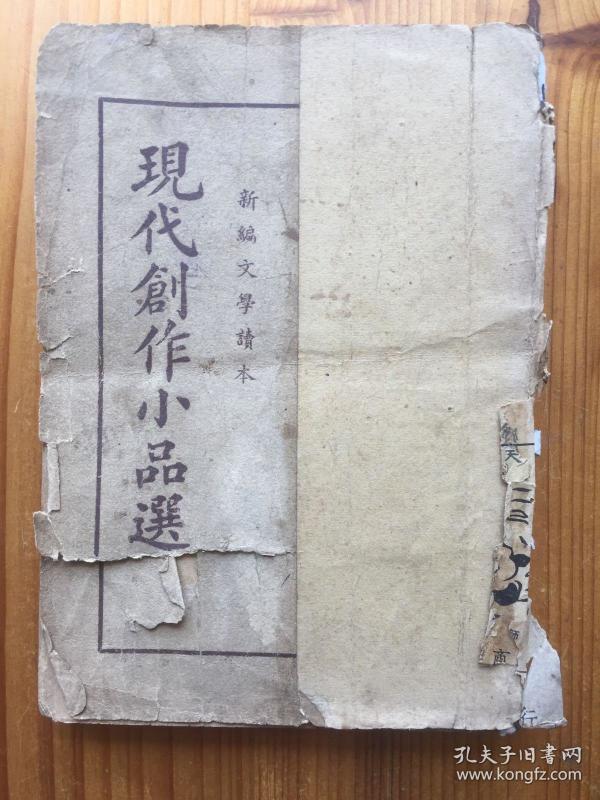 新編文學讀本
現代創作小品選
二三
商
行
孔夫子旧書网
www.kongfz.com